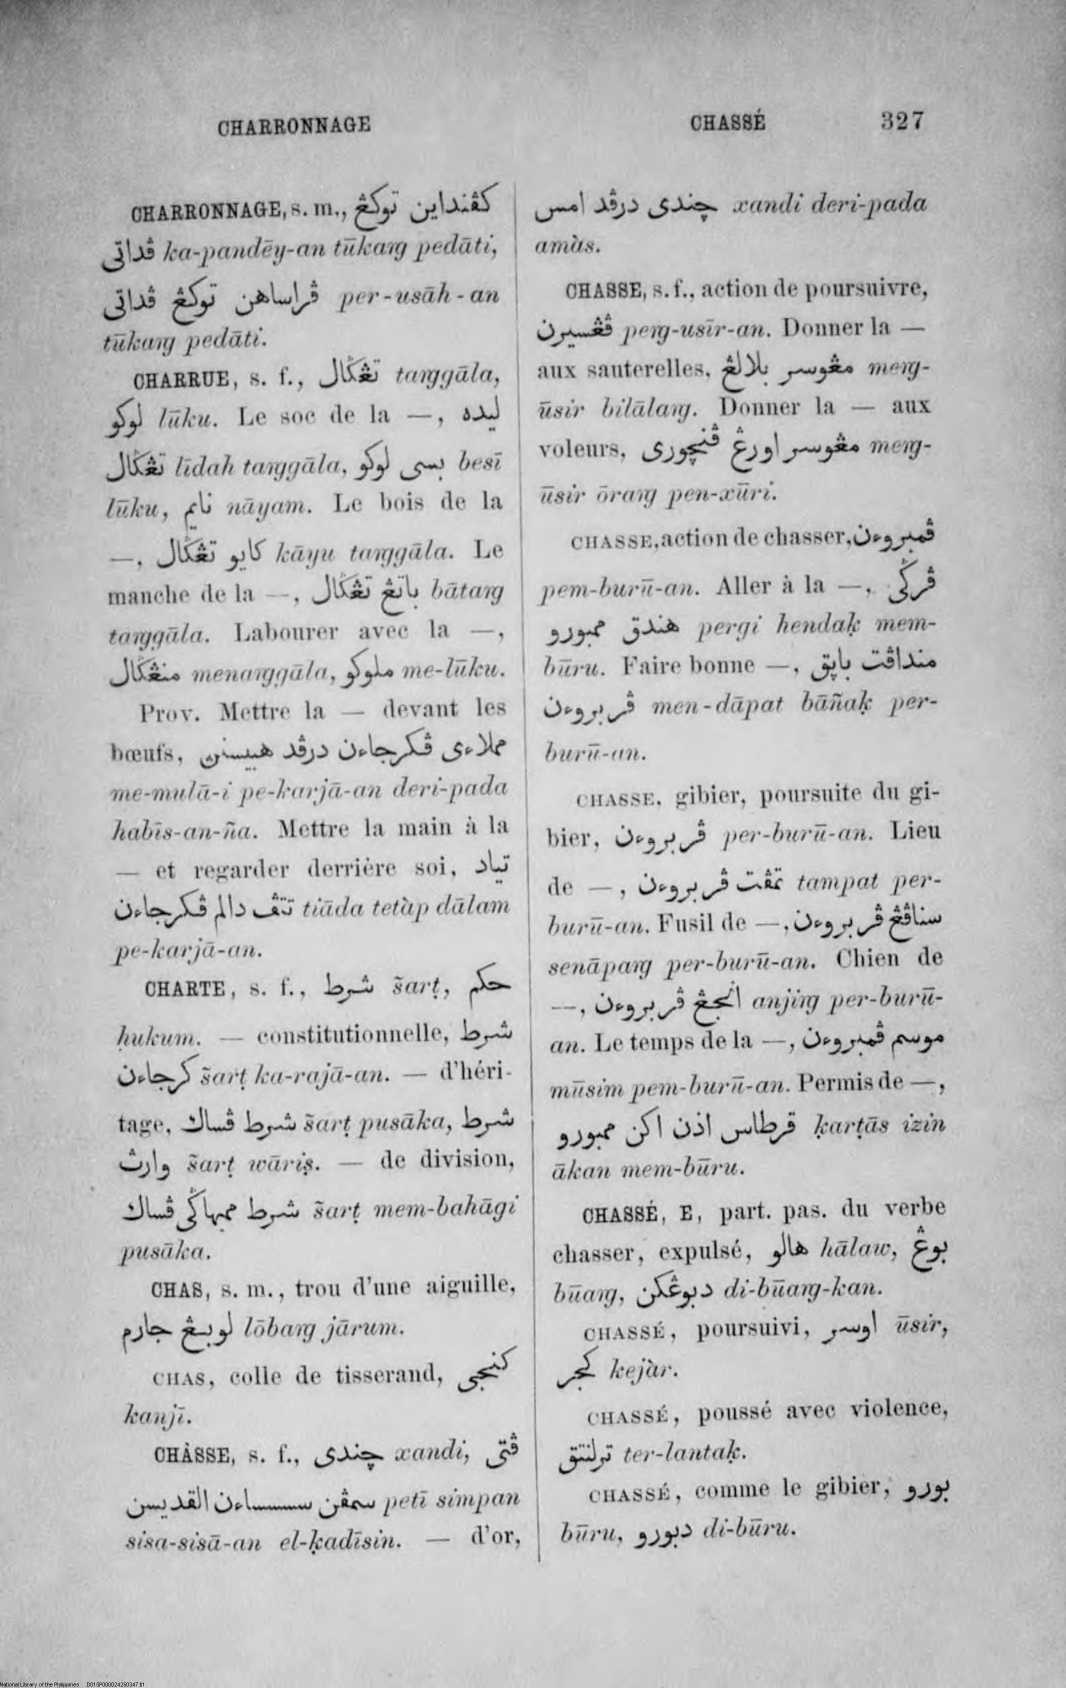 CHARRONNAGE
CHASSÉ 327
CHARRONNAGE, s. m., كڤنداين توكڠ
ڤداتي ka-pandēy-an tūkaᶇg pedāti,
ڤراساهن توكڠ ڤداتي per-usāh-an
tūkaᶇg pedāti.
CHARRUE, s. f., تڠݢال taᶇggāla,
لوكو lūku. Le soc de la —, ليده
تڠݢال līdah taᶇggāla, بسي لوكو besī
lūku, نايم nāyam. Le bois de la
—, كايو تڠݢال kāyu taᶇggāla. Le
manche de la —, باتڠ تڠݢال bātaᶇg
taᶇggāla. Labourer avec la —,
منڠݢال menaᶇggāla, ملوكو me-lūku.
Prov. Mettre la — devant les
bœufs, مملاءي ڤكرجاءن درڤد هبيسنڽ
me-mulā-i pe-karjā-an deri-pada
habīs-an-ña. Mettre la main à la
— et regarder derrière soi, تياد
تتڤ دالم ڤكرجاءن tiāda tetàp dālam
pe-karjā-an.
CHARTE, s. f., شرط s̃arṭ, حكم
ḥukum. — constitutionnelle, شرط
كرجاءن s̃arṭ ka-rajā-an. — d'héri-
tage, شرط ڤساك s̃arṭ pusāka, شرط
وارث s̃arṭ wāriṣ. — de division,
شرط ممبهاݢي ڤساك s̃arṭ mem-bahāgi
pusāka.
CHAS, s. m., trou d'une aiguille,
لوبڠ جارم lōbaᶇg jārum.
CHAS, colle de tisserand, كنجي
kanjī.
CHÀSSE, s. f., چندي xandi, ڤتي
سمڤن سسساءن القديسن petī simpan
sisa-sisā-an el-ḳadīsin. — d'or,
چندي درڤد امس xandi deri-pada
amàs.
CHASSE, s. f., action de poursuivre,
ڤڠسيرن peᶇg-usīr-an. Donner la —
aux sauterelles, مڠوسر بلالڠ meᶇg-
ūsir bilālaᶇg. Donner la — aux
voleurs, مڠوسر اورڠ ڤنچوري meᶇg-
ūsir ōraᶇg pen-xūri.
CHASSE, action de chasser, ڤمبروءن
pem-burū-an. Aller à la —, ڤرݢي
هندق ممبورو pergi hendaḳ mem-
būru. Faire bonne —, منداڤت باڽق
ڤربروءن men-dāpat bāñaḳ per-
burū-an.
CHASSE, gibier, poursuite du gi-
bier, ڤربروءن per-burū-an. Lieu
de —, تمڤت ڤربروءن tampat per-
burū-an. Fusil de —, سناڤڠ ڤربروءن
senāpaᶇg per-burū-an. Chien de
—, انجڠ ڤربروءن anjiᶇg per-burū-
an. Le temps de la —, موسم ڤمبروءن
mūsim pem-burū-an. Permis de —,
قرطاس اذن اكن ممبورو ḳarṭās izin
ākan mem-būru.
CHASSÉ, E, part. pas. du verbe
chasser, expulsé, هالو hālaw, بوڠ
būaᶇg, دبوڠكن di-būaᶇg-kan.
CHASSÉ, poursuivi, اوسر ūsir,
كجر kejàr.
CHASSÉ, poussé avec violence,
ترلنتق ter-lantaḳ.
CHASSÉ, comme le gibier, بورو
būru, دبورو di-būru.
National Library of the Philippines